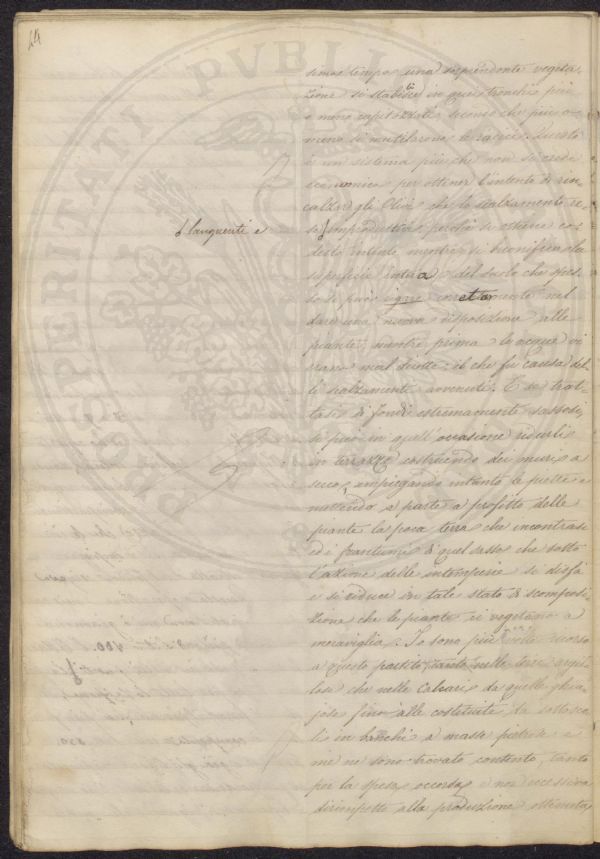 44
PROSPERITATI PUBLI
simo tempo una sorprendente vegeta-
zione si stabilisce in quei tronchi più
o meno capitozzati, secondo che più o
meno si mutilarono le radici. Questo
è un sistema più che non si crede
economico per ottener l'intento di rin-
calzar gli Olivi che lo scalzamento re-
se improduttivi, perchè si ottiene co-
languenti e
desto intento mentre si bonifica la
superficie intera del suolo che spes-
so si può ignettamente nel
dare una nuova disposizione alle
piante, mentre prima le acque vi
erano mal dirette: il che fu causa del-
li scalzamenti avvenuti. E se trat-
tasi di fondi estremamente sassosi,
si può in quell'occasione ridurli
in terrazze costruendo dei muri a
secco, impiegando intanto le pietre e
mettendo a parte a profitto delle
piante la poca terra che incontrasi
ed i frantumi di quel sasso che sotto
l'azione delle intemperie si disfà
e si riduce in tale stato di scomposi-
zione che le piante vi vegetano a
meraviglia. Io sono più volte ricorso
a questo partito, tanto nelle terre argil-
lose che nelle Calcari da quelle ghia-
jose fino alle costituite da sottosuo-
li in banchi a massa pietrosa e
me ne sono trovato contento, tanto
per la spesa occorsa, e non eccessiva
dirimpetto alla produzione ottenuta